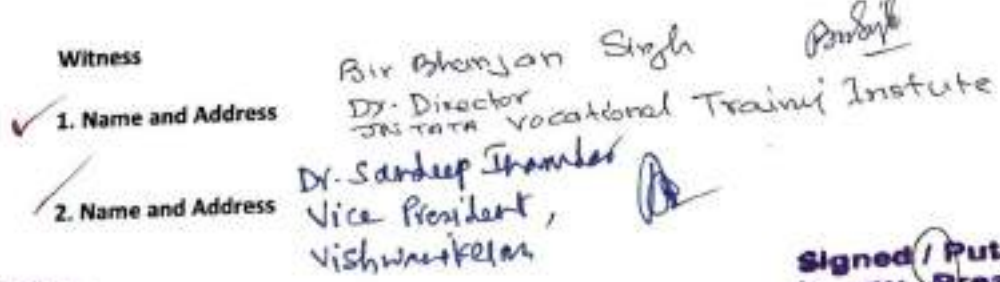 Witness
Bir Bhanjan Singh
1. Name and Address Dy. Director
JRD TATA Vocational Trainig Instute
2. Name and Address Dr. Sandeep Inamdar
Vice President,
Signed / Put